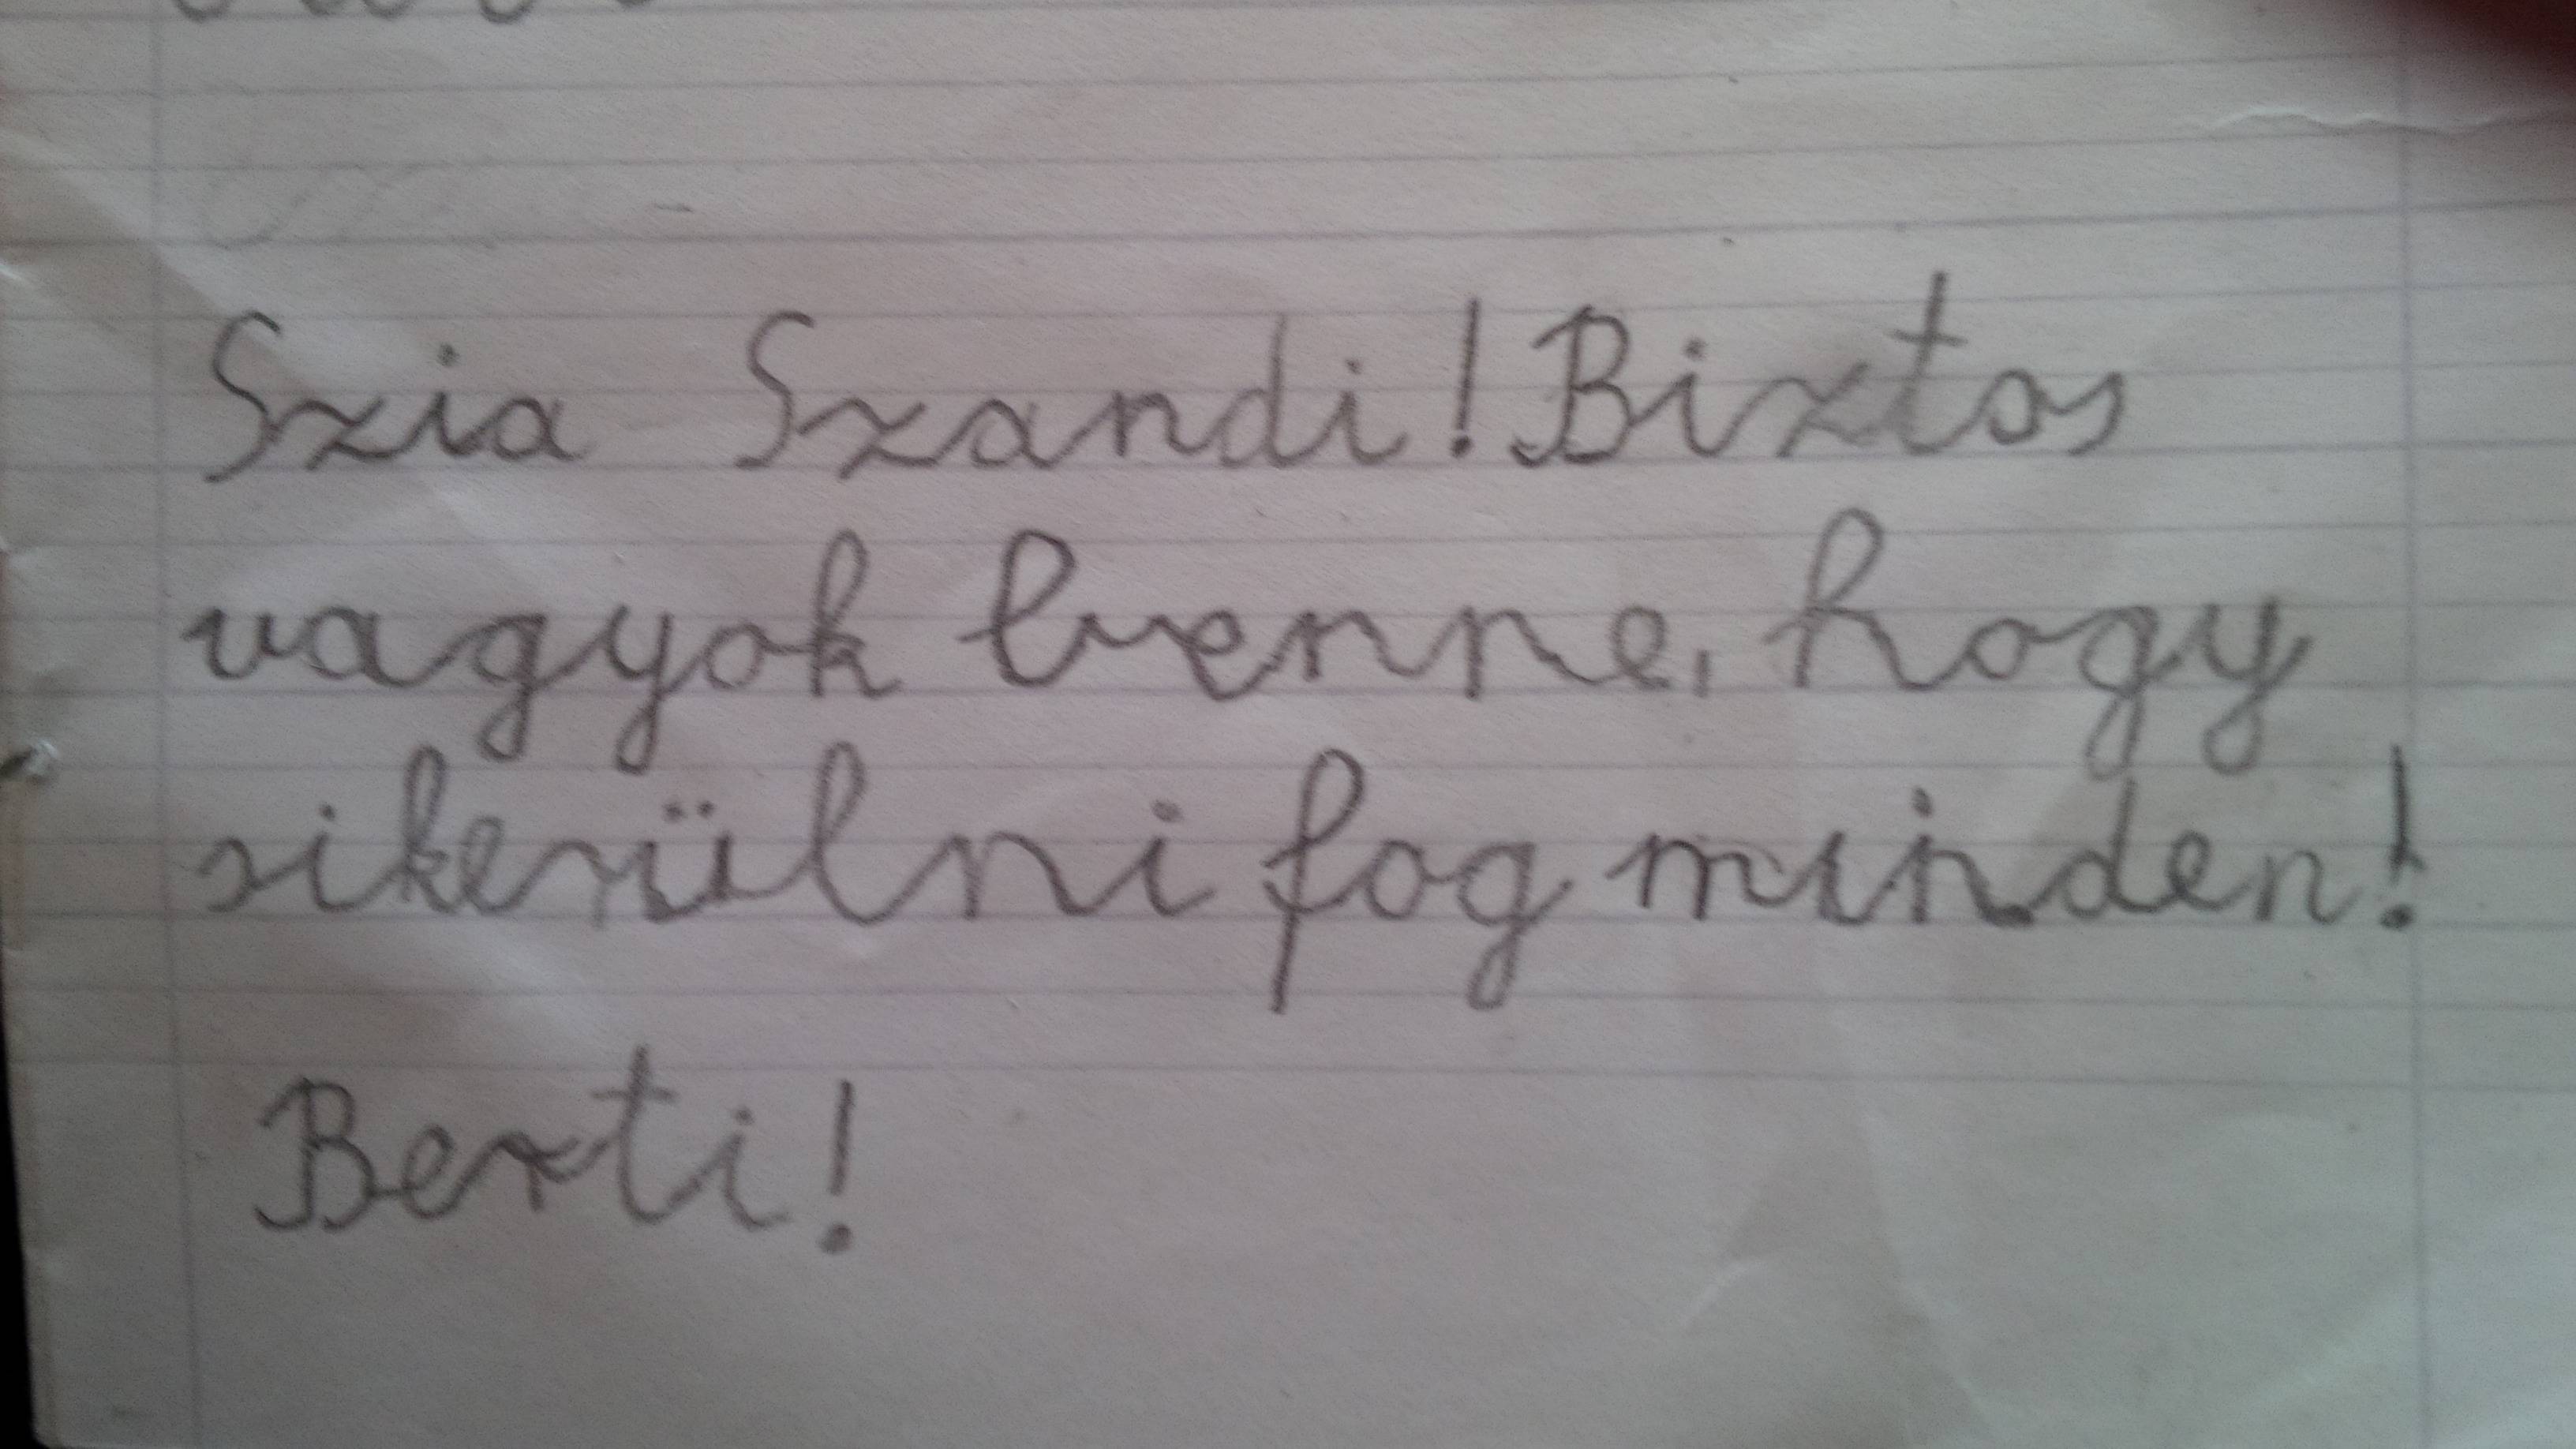 Szia Szandi! Biztos
vagyok benne, hogy
sikerülni fog minden!
Berti!